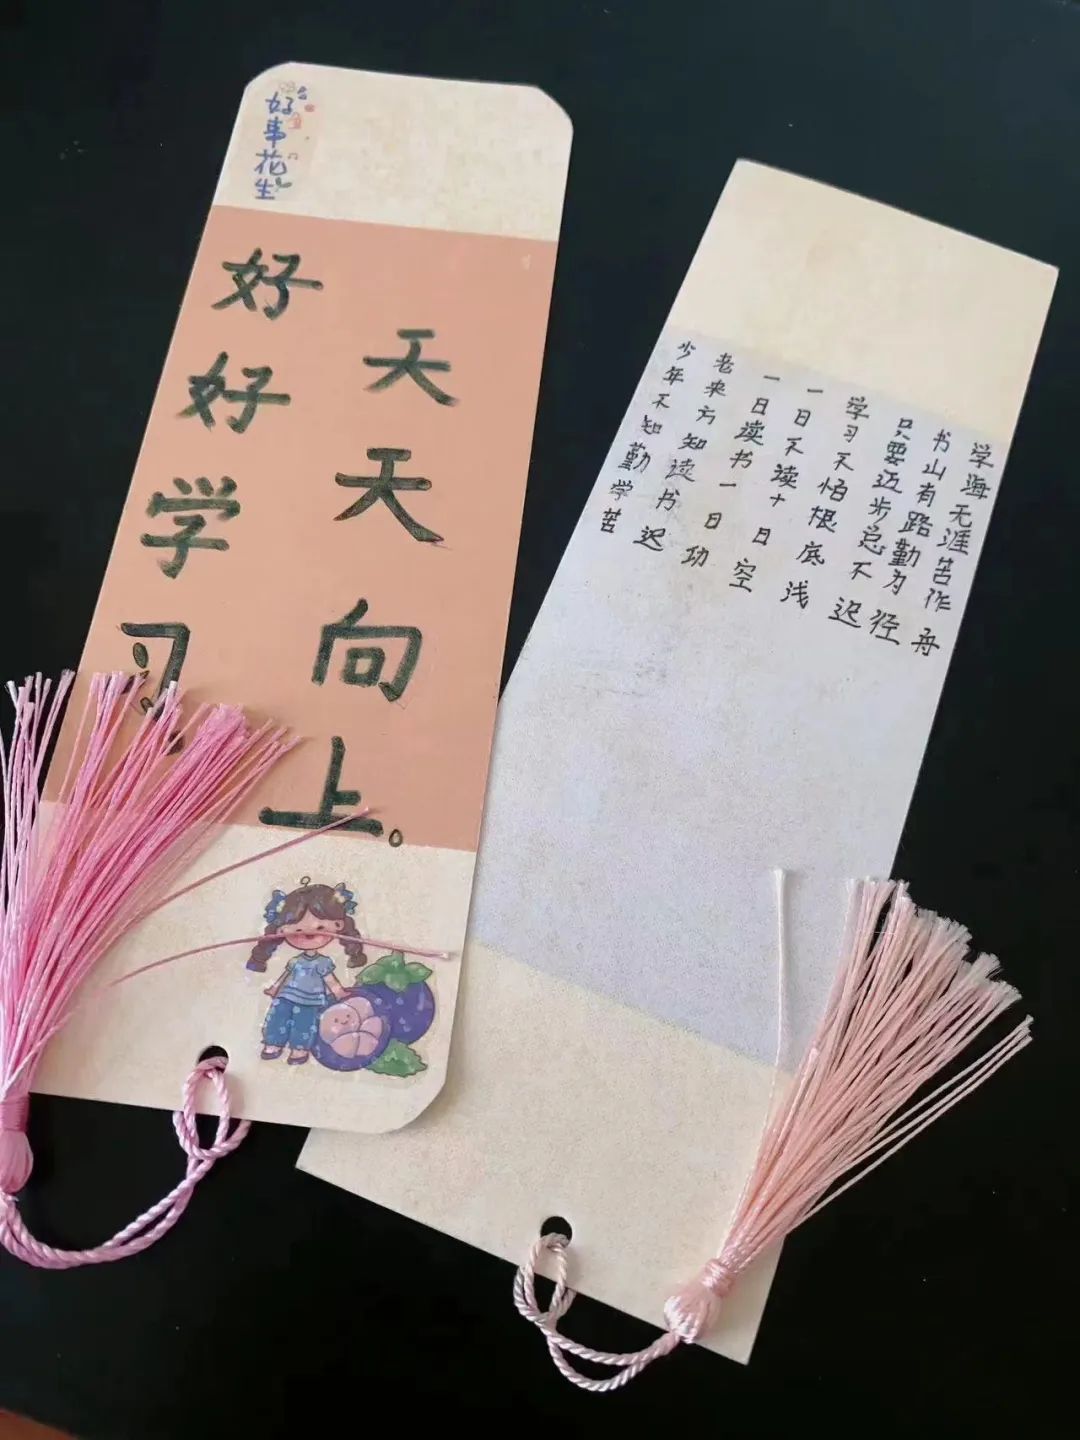 好事花生
好好学习
天天向上。
少年不知勤学苦
老来方知读书迟
一日读书一日功
一日不读十日空
学习不怕根底浅
只要迈步总不迟
书山有路勤为径
学海无涯苦作舟